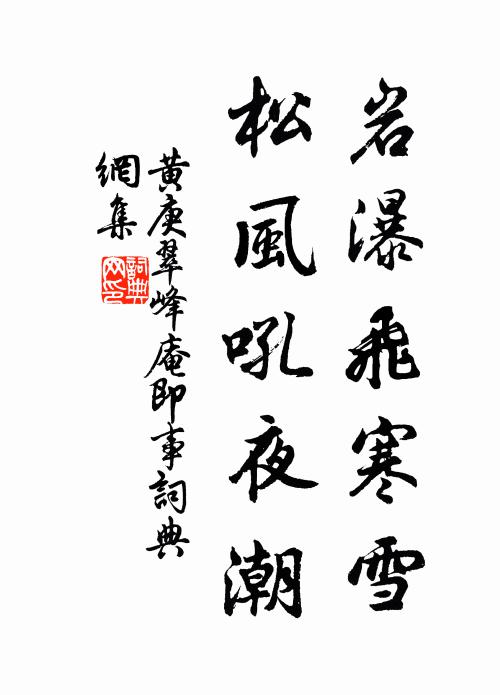 岩瀑飛寒雪
松風吼夜潮
黄庚翠峰庵即事詞典
網集
詞典
网印